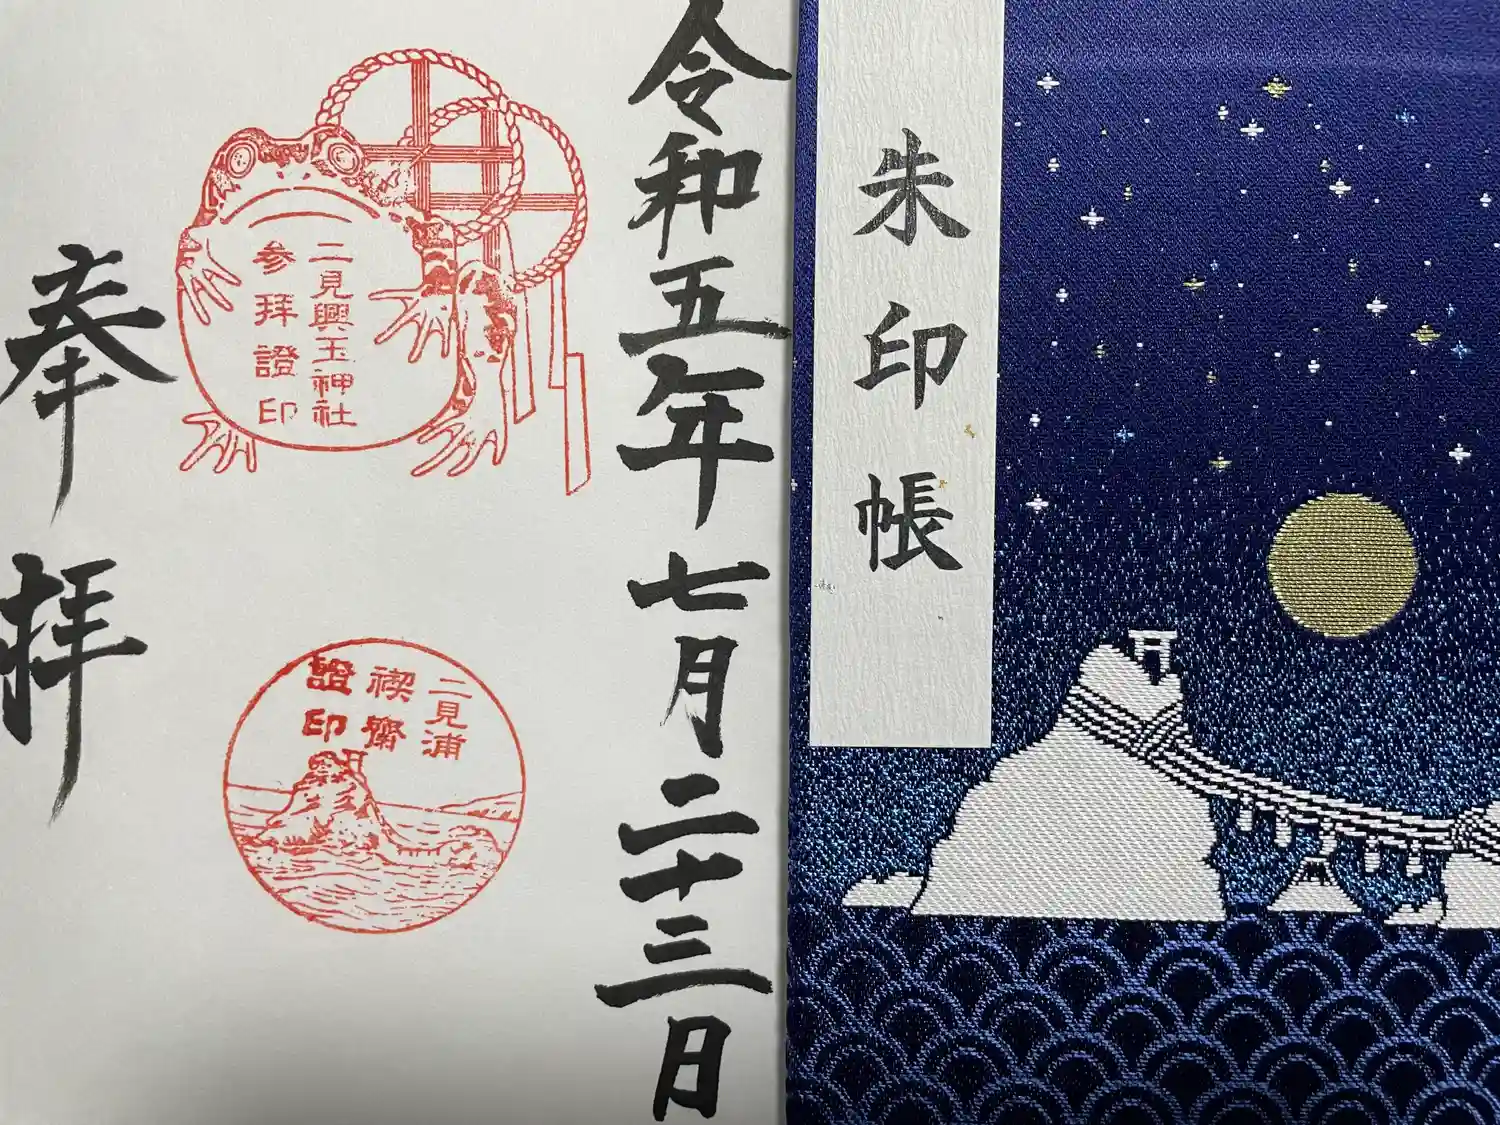 朱印帳
令和五年七月二十三日
二見興玉神社
参拝證印
二見浦
禊齋
證印
奉拝